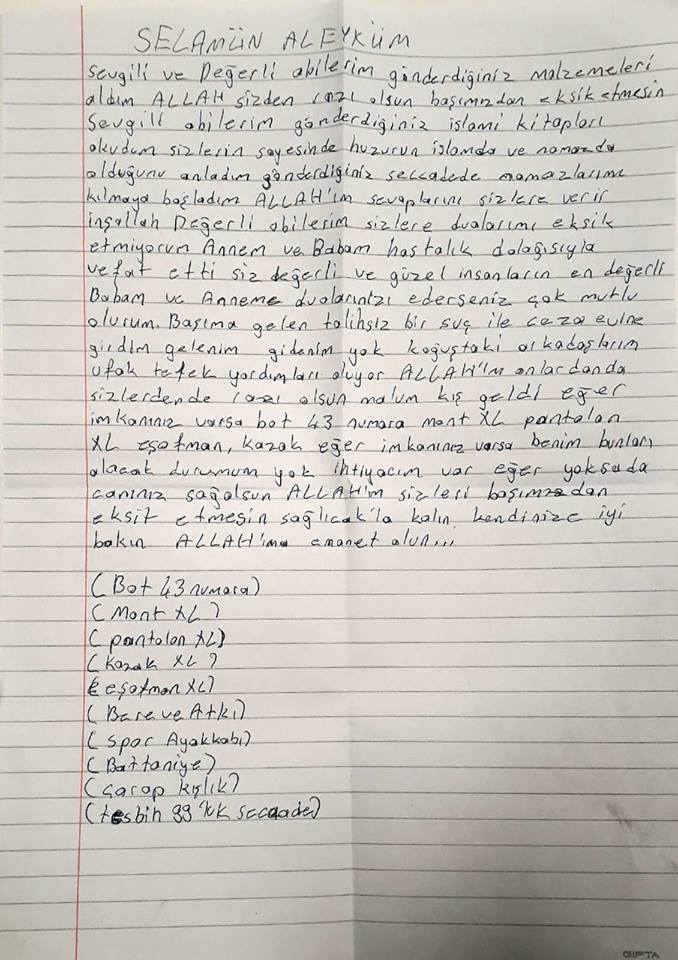 SELAMÜN ALEYKÜM
Sevgili ve Değerli abilerim gönderdiğiniz malzemeleri
aldım ALLAH sizden razı olsun başımızdan eksik etmesin
Sevgili abilerim gönderdiğiniz islami kitapları
okudum sizlerin sayesinde huzurun islamda ve namazda
olduğunu anladım gönderdiğiniz seccadede namazlarımı
kılmaya başladım ALLAH'ım sevaplarını sizlere verir
inşallah Değerli abilerim sizlere dualarımı eksik
etmiyorum Annem ve Babam hastalık dolağısıyla
vefat etti siz değerli ve güzel insanların en değerli
Babam ve Anneme dualarınızı ederseniz çok mutlu
olurum. Başıma gelen talihsiz bir suç ile ceza evine
girdim gelenim gidenim yok koğuştaki arkadaşların
ufak tefek yardımları oluyor ALLAH'ım onlardanda
sizlerdende razı olsun malum kış geldi eğer
imkanınız varsa bot 43 numara mont XL pantolon
XL eşofman, kazak eğer imkanınız varsa benim bunları
alacak durumum yok ihtiyacım var eğer yoksada
canınız sağolsun ALLAH'ım sizleri başımızdan
eksit etmesin sağlıcak'la kalın kendinize iyi
bakın ALLAH'ıma emanet olun...
(Bot 43 numara)
(Mont XL)
(pantolon XL)
(Kazak XL)
(eşofman XL)
(Bere ve Atkı)
(Spor Ayakkabı)
(Battaniye)
(Çorap kışlık)
(tesbih 99 luk seccade)
GIPTA